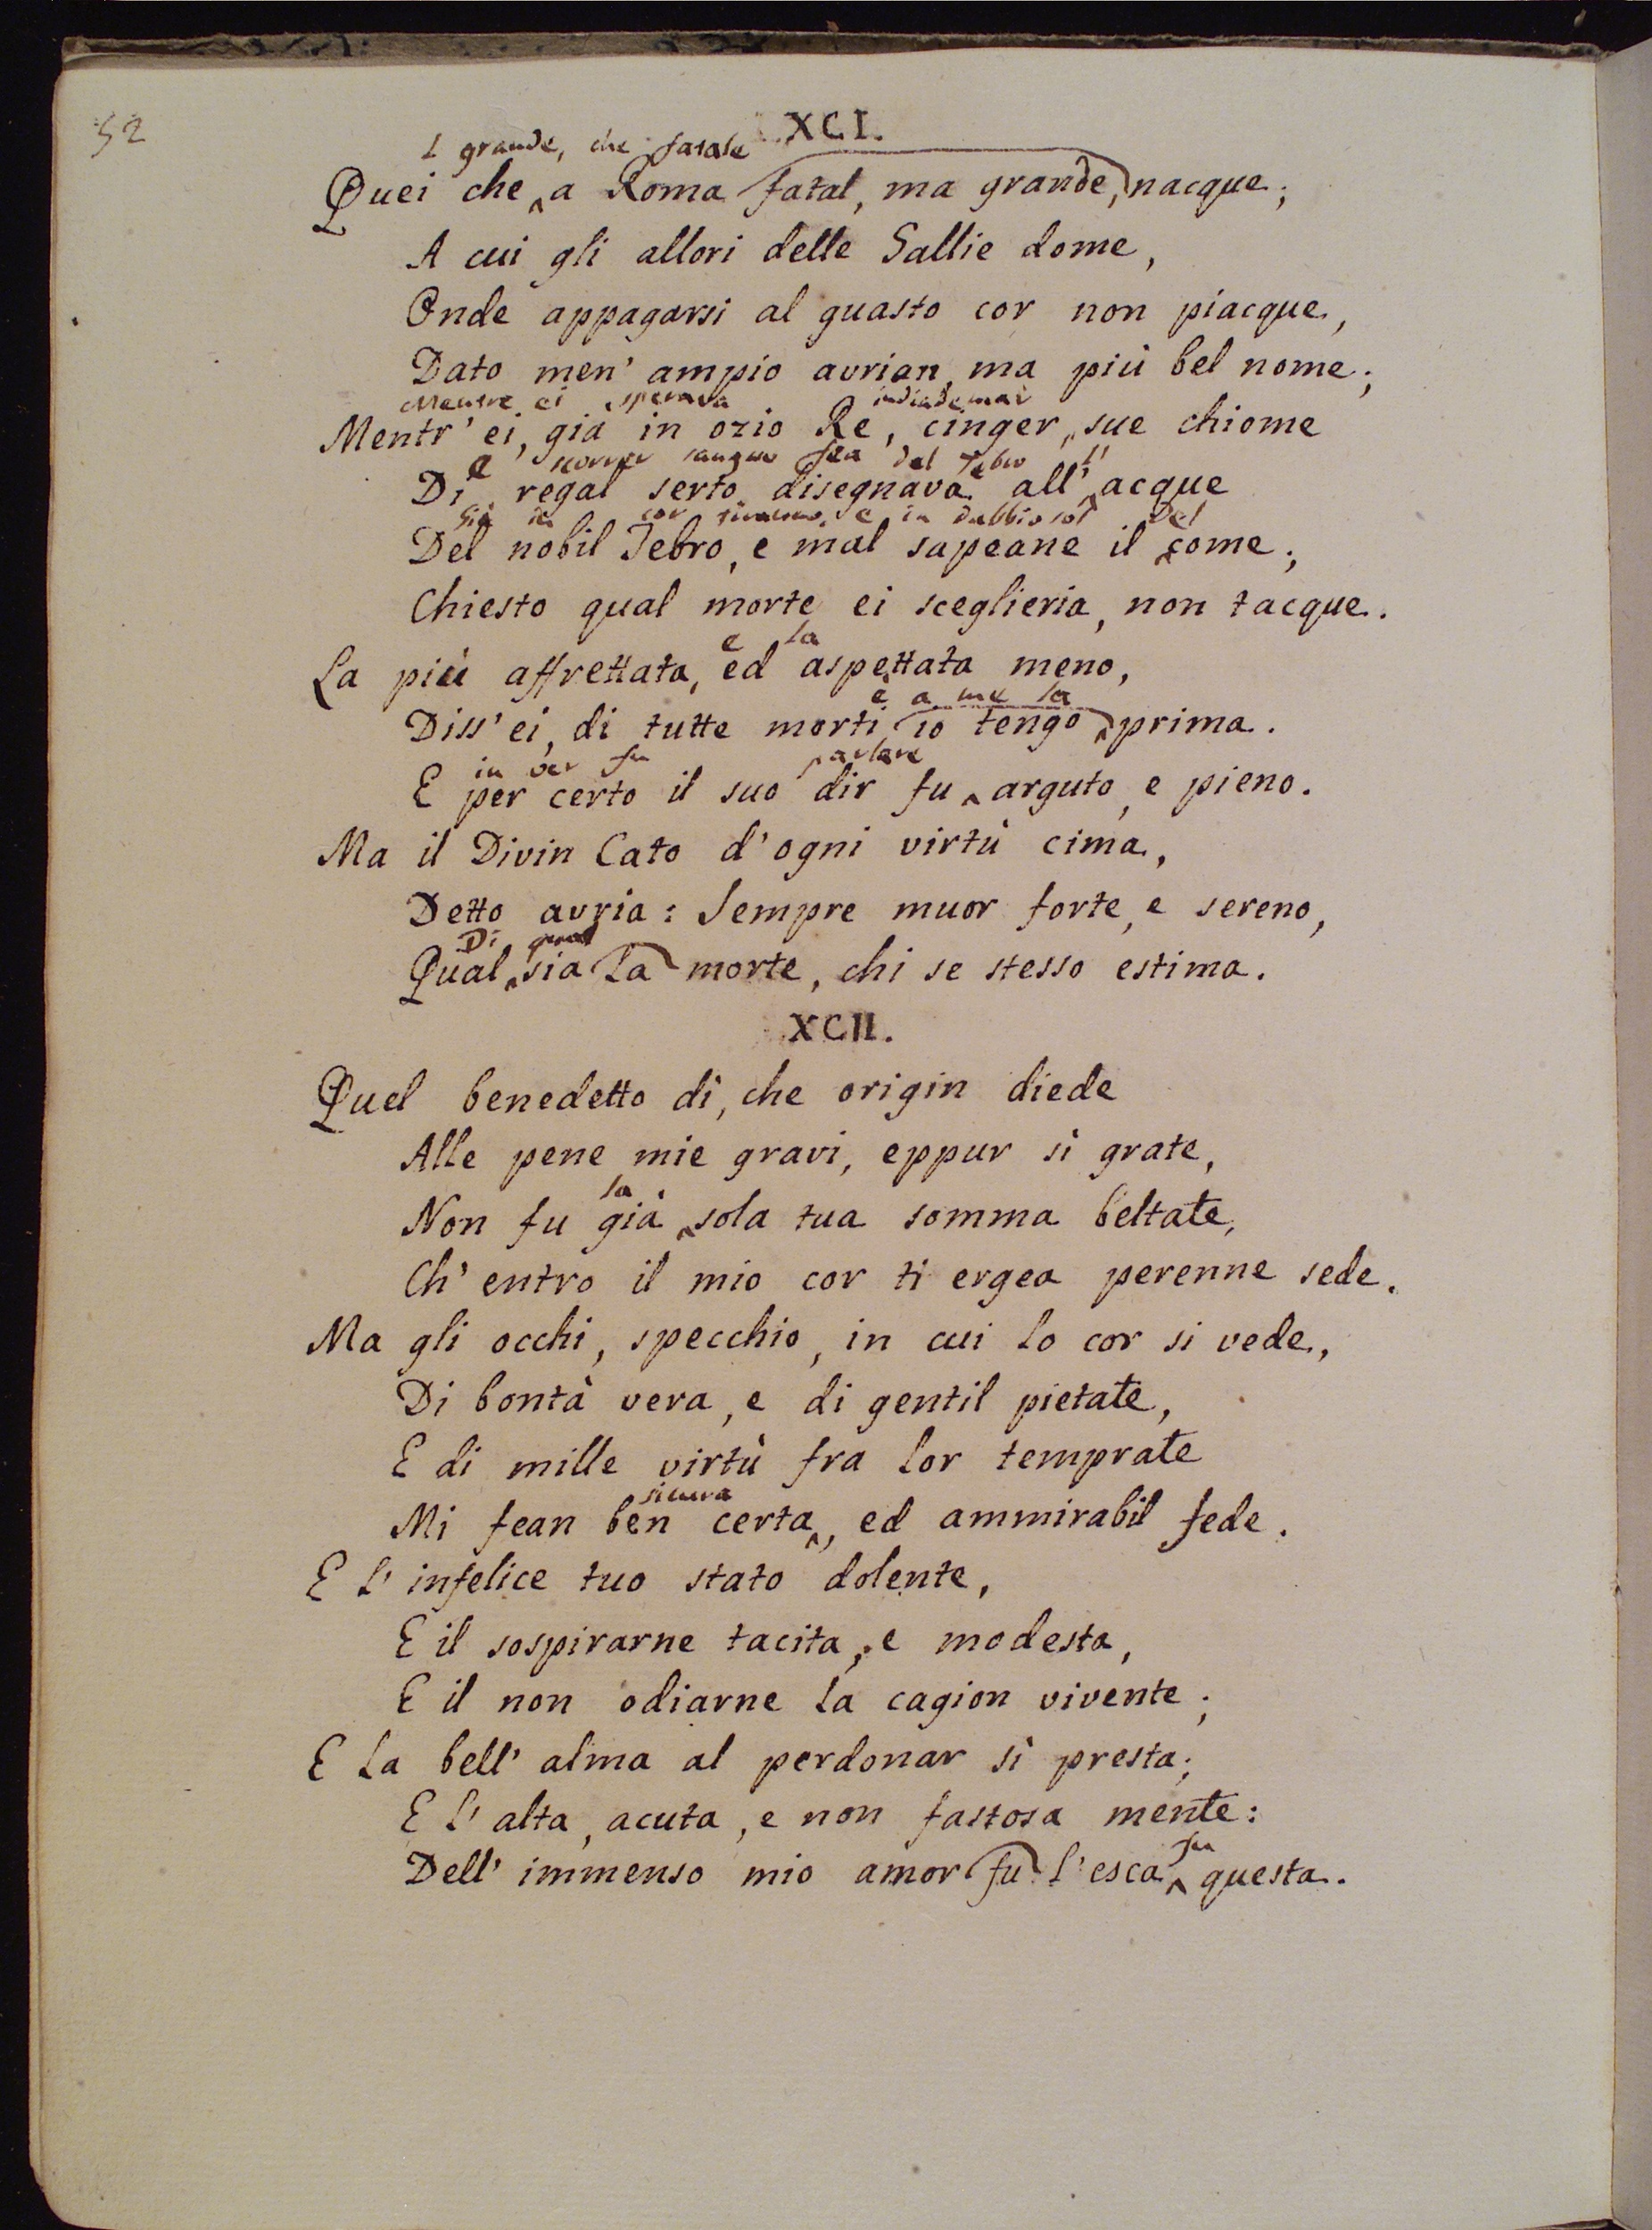 52
XCI.
L grande, che fatale
Quei che a Roma fatal, ma grande, nacque;
A cui gli allori delle Gallie dome,
Onde appagarsi al guasto cor non piacque,
Dato men' ampio avrian, ma più bel nome;
Mentre ei sperava indiademar
Mentr' ei, già in ozio Re, cinger sue chiome
E scorrer sangue fea del Tebro l'
Di regal serto disegnava all' acque
Già in cor e in dubbio sol del
Del nobil Tebro, e mal sapeane il come;
Chiesto qual morte ei sceglieria, non tacque.
e la
La più affrettata, ed aspettata meno,
è a me la
Diss' ei, di tutte morti io tengo prima.
in ver fu parlare
E per certo il suo dir fu arguto, e pieno.
Ma il Divin Cato d' ogni virtù cima,
Detto avria: Sempre muor forte, e sereno,
Di qual
Qual sia la morte, chi se stesso estima.
XCII.
Quel benedetto dì, che origin diede
Alle pene mie gravi, eppur sì grate,
la
Non fu già sola tua somma beltate,
Ch' entro il mio cor ti ergea perenne sede.
Ma gli occhi, specchio, in cui lo cor si vede,
Di bontà vera, e di gentil pietate,
E di mille virtù fra lor temprate
sicura
Mi fean ben certa, ed ammirabil fede.
E l' infelice tuo stato dolente,
E il sospirarne tacita, e modesta,
E il non odiarne la cagion vivente;
E la bell' alma al perdonar sì presta;
E l' alta, acuta, e non fastosa mente:
fu
Dell' immenso mio amor fu l' esca questa.